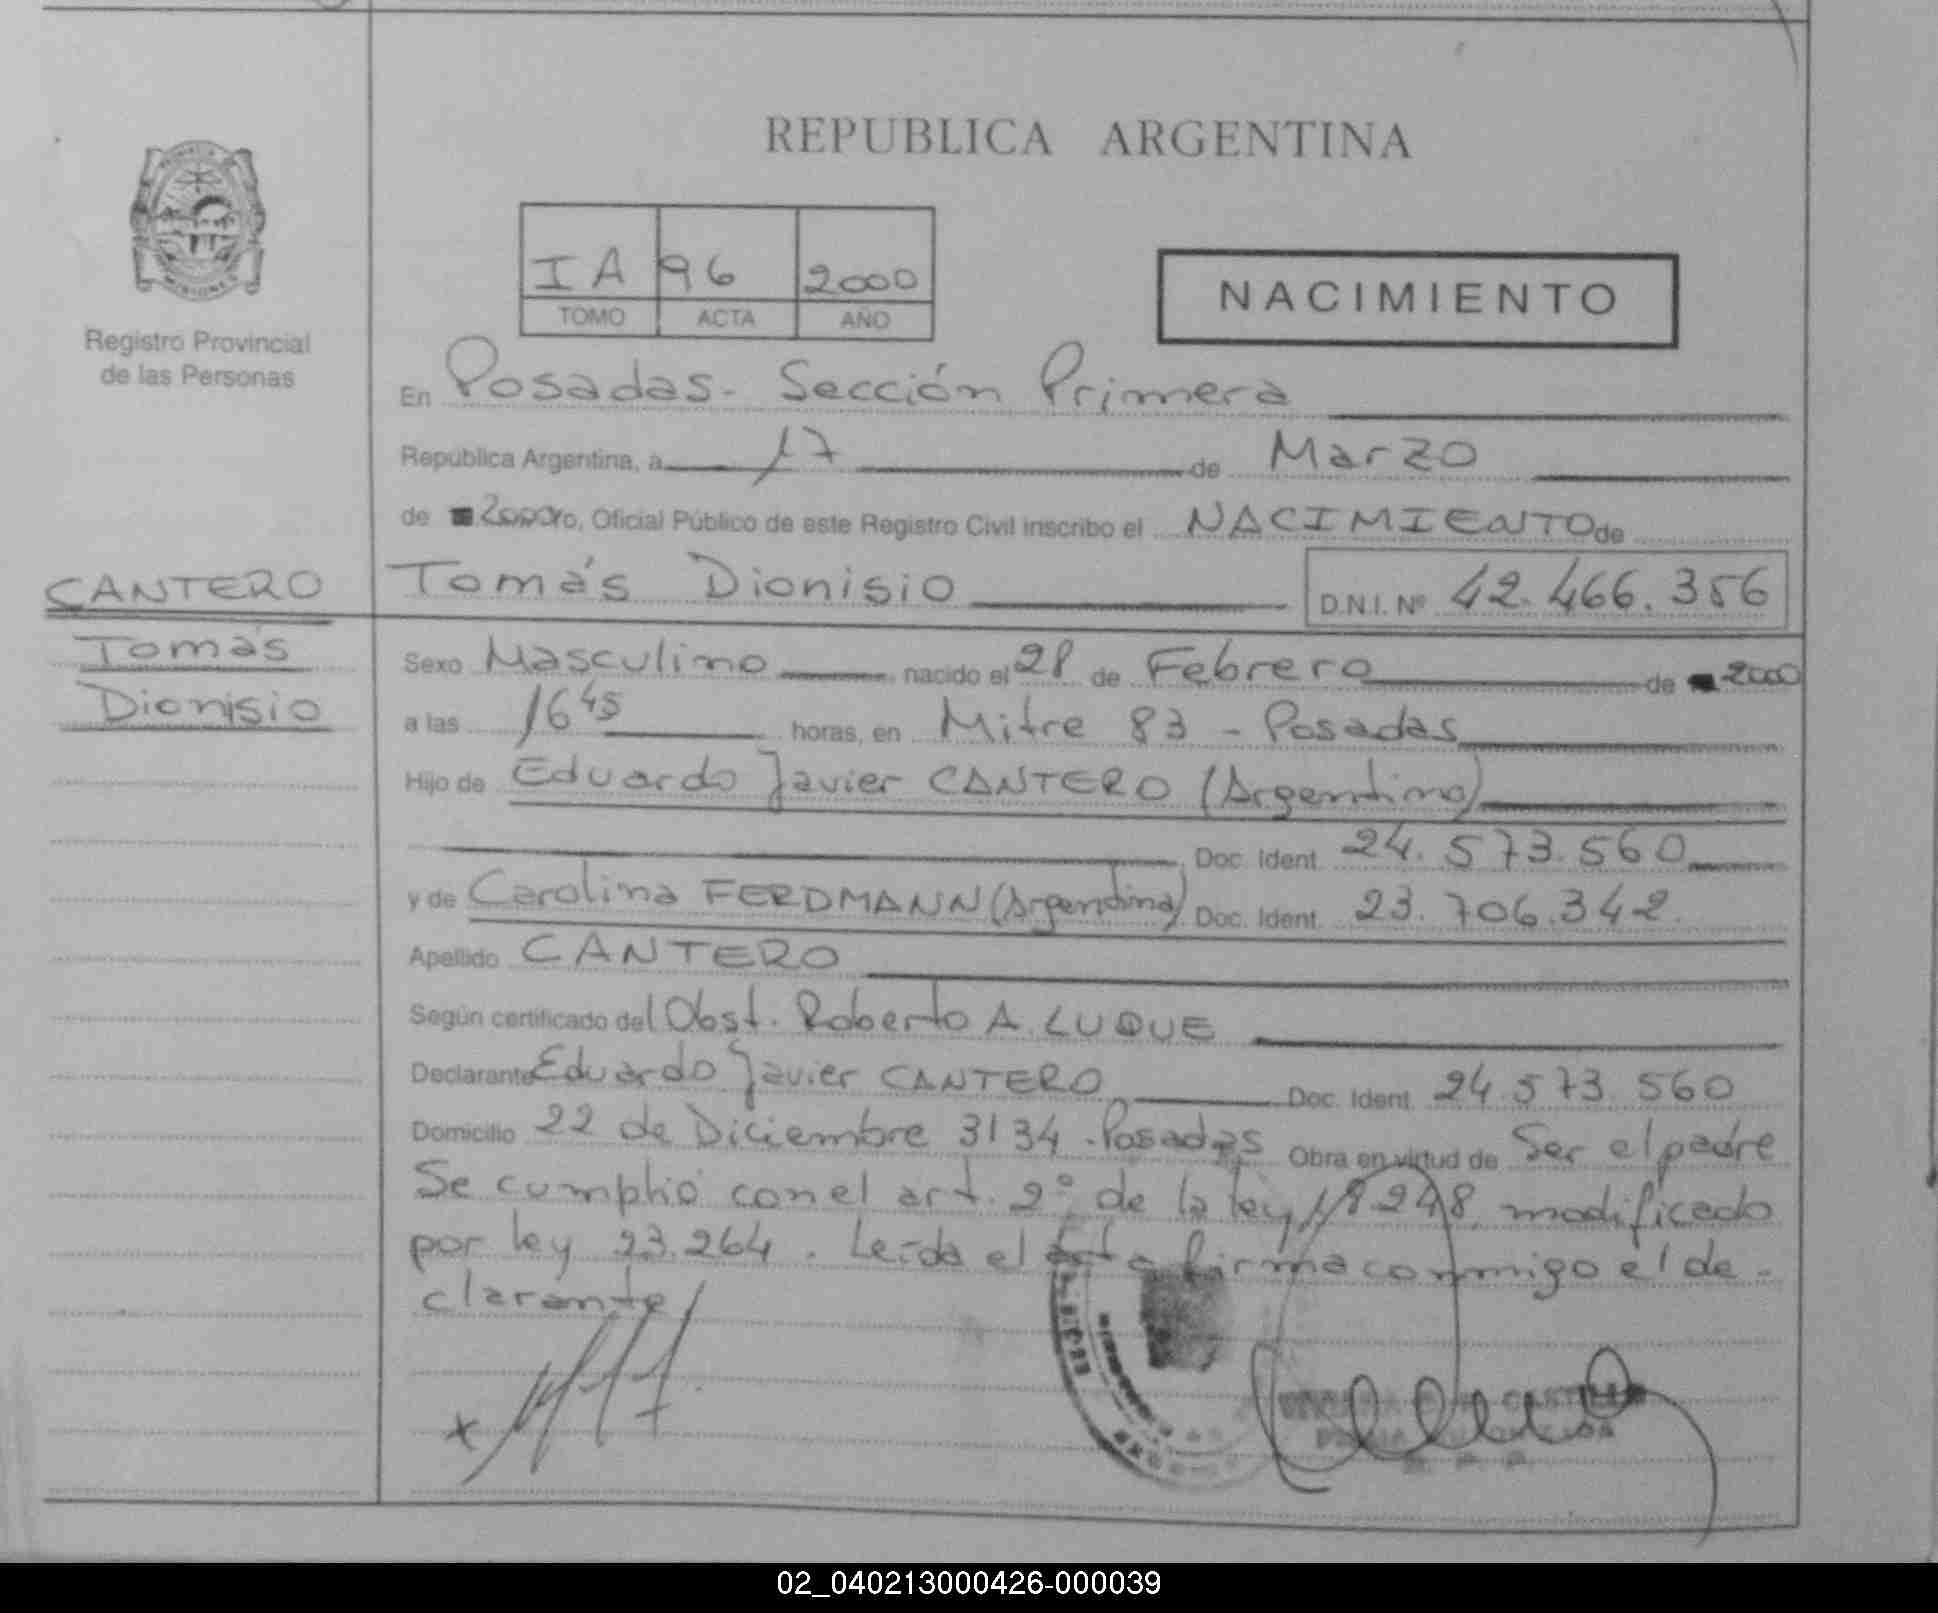 REPUBLICA ARGENTINA
IA 96 2000
TOMO ACTA AÑO
NACIMIENTO
Registro Provincial
de las Personas
En Posadas - Sección Primera
República Argentina, a 17 de Marzo
de 2000 yo, Oficial Público de este Registro Civil inscribo el NACIMIENTO de
CANTERO
Tomás
Dionisio
Tomás Dionisio D.N.I. Nº 42.466.356
Sexo Masculino nacido el 28 de Febrero de 2000
a las 16 45 horas, en Mitre 83 - Posadas
Hijo de Eduardo Javier CANTERO (Argentino)
Doc. Ident. 24.573.560
y de Carolina FERDMANN (Argentina) Doc. Ident. 23.706.342
Apellido CANTERO
Según certificado del Obst. Roberto A. LUQUE
Declarante Eduardo Javier CANTERO Doc. Ident. 24.573.560
Domicilio 22 de Diciembre 3134 - Posadas Obra en virtud de Ser el padre
Se cumplió con el art. 2º de la ley 18248 modificado
por ley 23.264. Leída el acta firma conmigo el de-
clarante
02_040213000426-000039